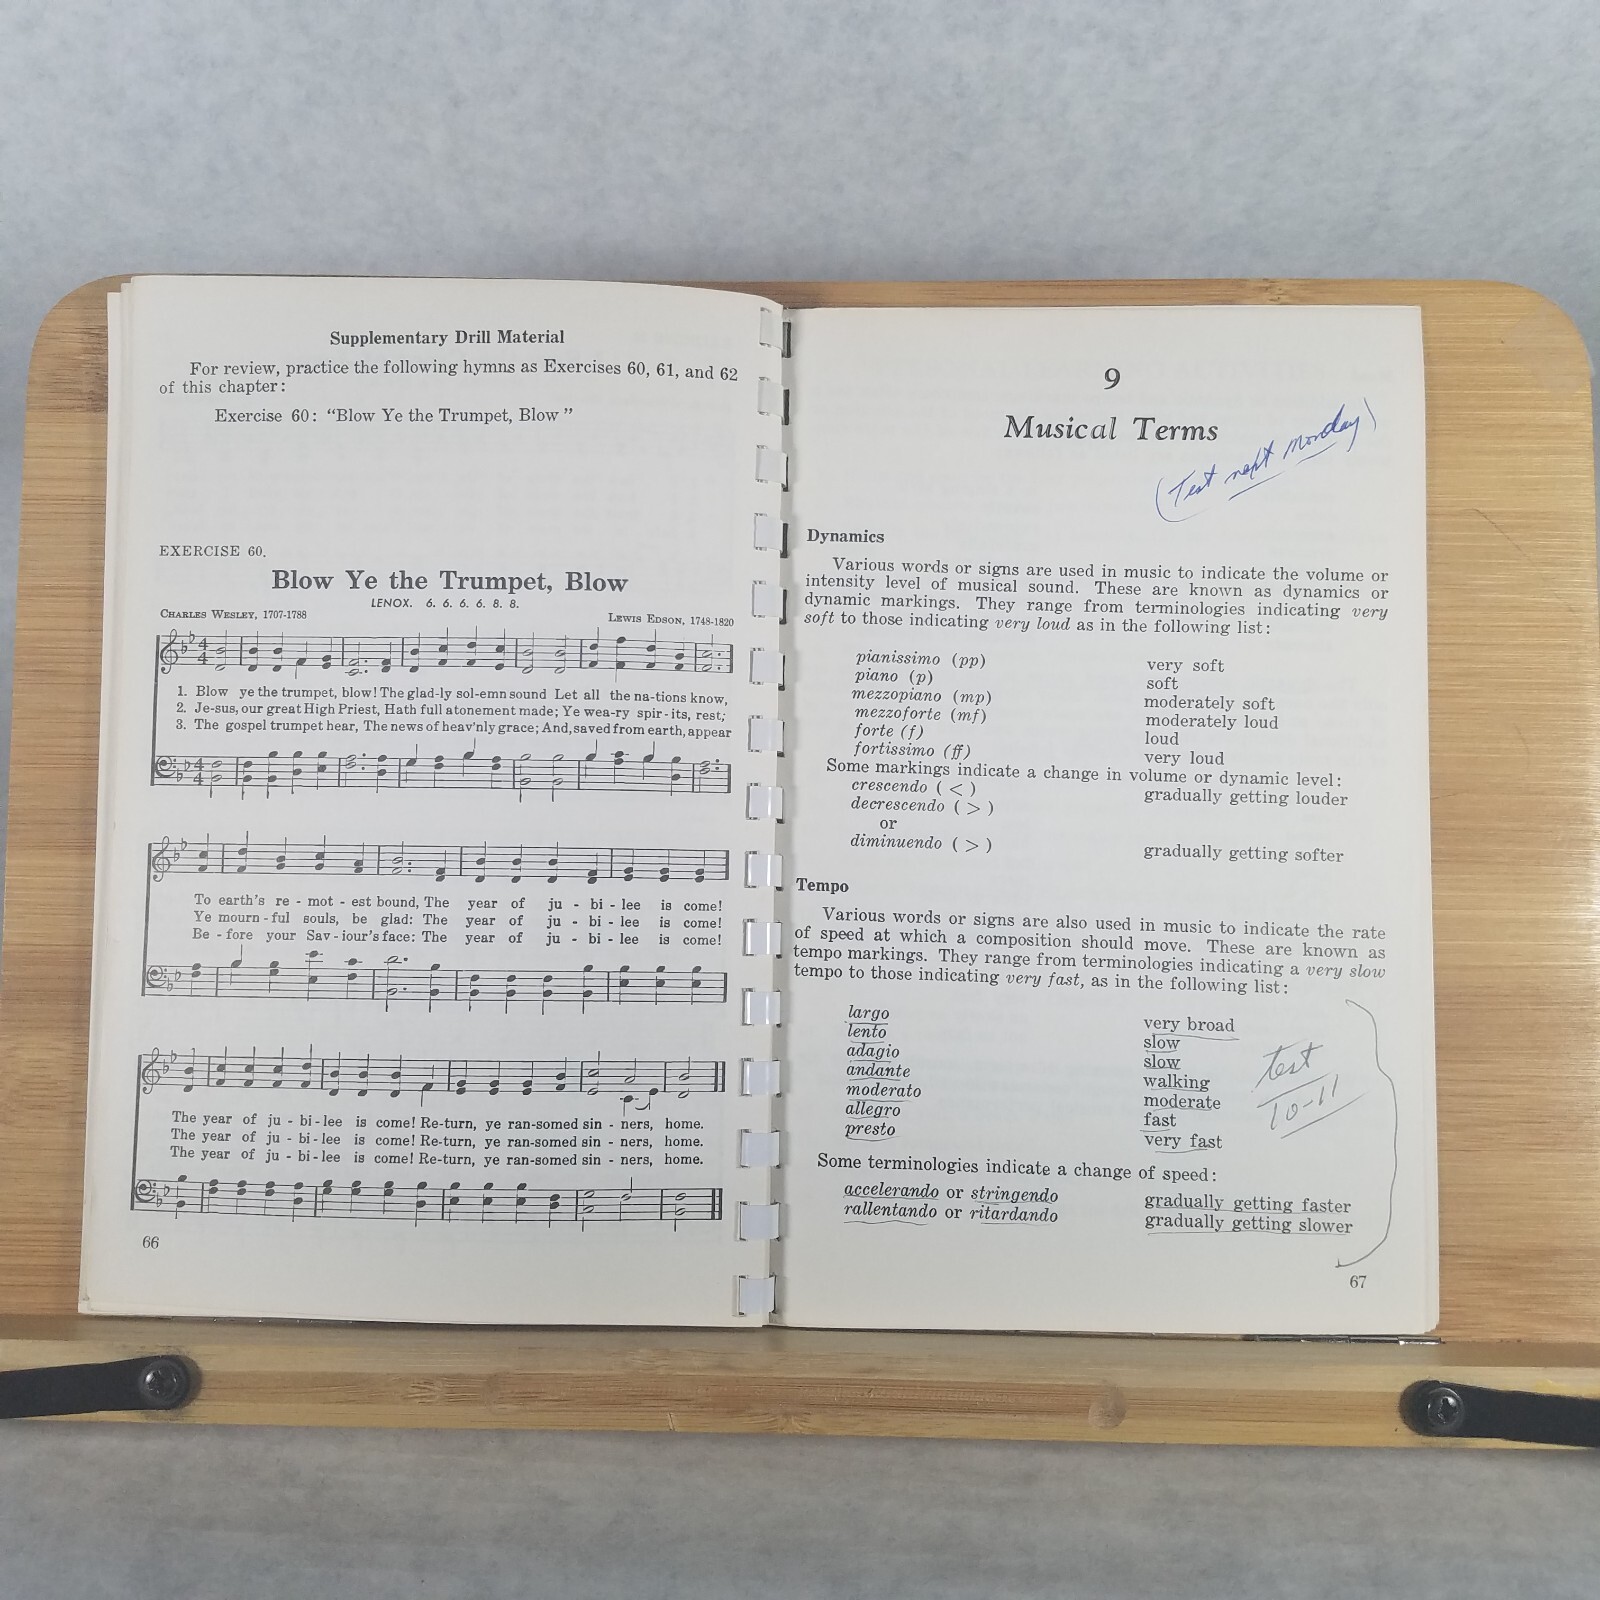 Supplementary Drill Material
For review, practice the following hymns as Exercises 60, 61, and 62
of this chapter:
Exercise 60: “Blow Ye the Trumpet, Blow ”
EXERCISE 60.
Blow Ye the Trumpet, Blow
LENOX. 6. 6. 6. 6. 8. 8.
CHARLES WESLEY, 1707-1788
LEWIS EDSON, 1748-1820
1. Blow ye the trumpet, blow! The glad-ly sol-emn sound Let all the na-tions know,
2. Je-sus, our great High Priest, Hath full atonement made; Ye wea-ry spir-its, rest;
3. The gospel trumpet hear, The news of heav'nly grace; And, saved from earth, appear
To earth's re - mot - est bound, The year of ju - bi - lee is come!
Ye mourn - ful souls, be glad: The year of ju - bi - lee is come!
Be - fore your Sav - iour's face: The year of ju - bi - lee is come!
The year of ju - bi - lee is come! Re-turn, ye ran-somed sin - ners, home.
The year of ju - bi - lee is come! Re-turn, ye ran-somed sin - ners, home.
The year of ju - bi - lee is come! Re-turn, ye ran-somed sin - ners, home.
66
9
Musical Terms
(Test next Monday)
Dynamics
Various words or signs are used in music to indicate the volume or
intensity level of musical sound. These are known as dynamics or
dynamic markings. They range from terminologies indicating very
soft to those indicating very loud as in the following list:
pianissimo (pp) very soft
piano (p) soft
mezzopiano (mp) moderately soft
mezzoforte (mf) moderately loud
forte (f) loud
fortissimo (ff) very loud
Some markings indicate a change in volume or dynamic level:
crescendo ( < ) gradually getting louder
decrescendo ( > )
or
diminuendo ( > ) gradually getting softer
Tempo
Various words or signs are also used in music to indicate the rate
of speed at which a composition should move. These are known as
tempo markings. They range from terminologies indicating a very slow
tempo to those indicating very fast, as in the following list:
largo very broad
lento slow
adagio slow
andante walking
moderato moderate
allegro fast
presto very fast
test
10-11
Some terminologies indicate a change of speed:
accelerando or stringendo gradually getting faster
rallentando or ritardando gradually getting slower
67